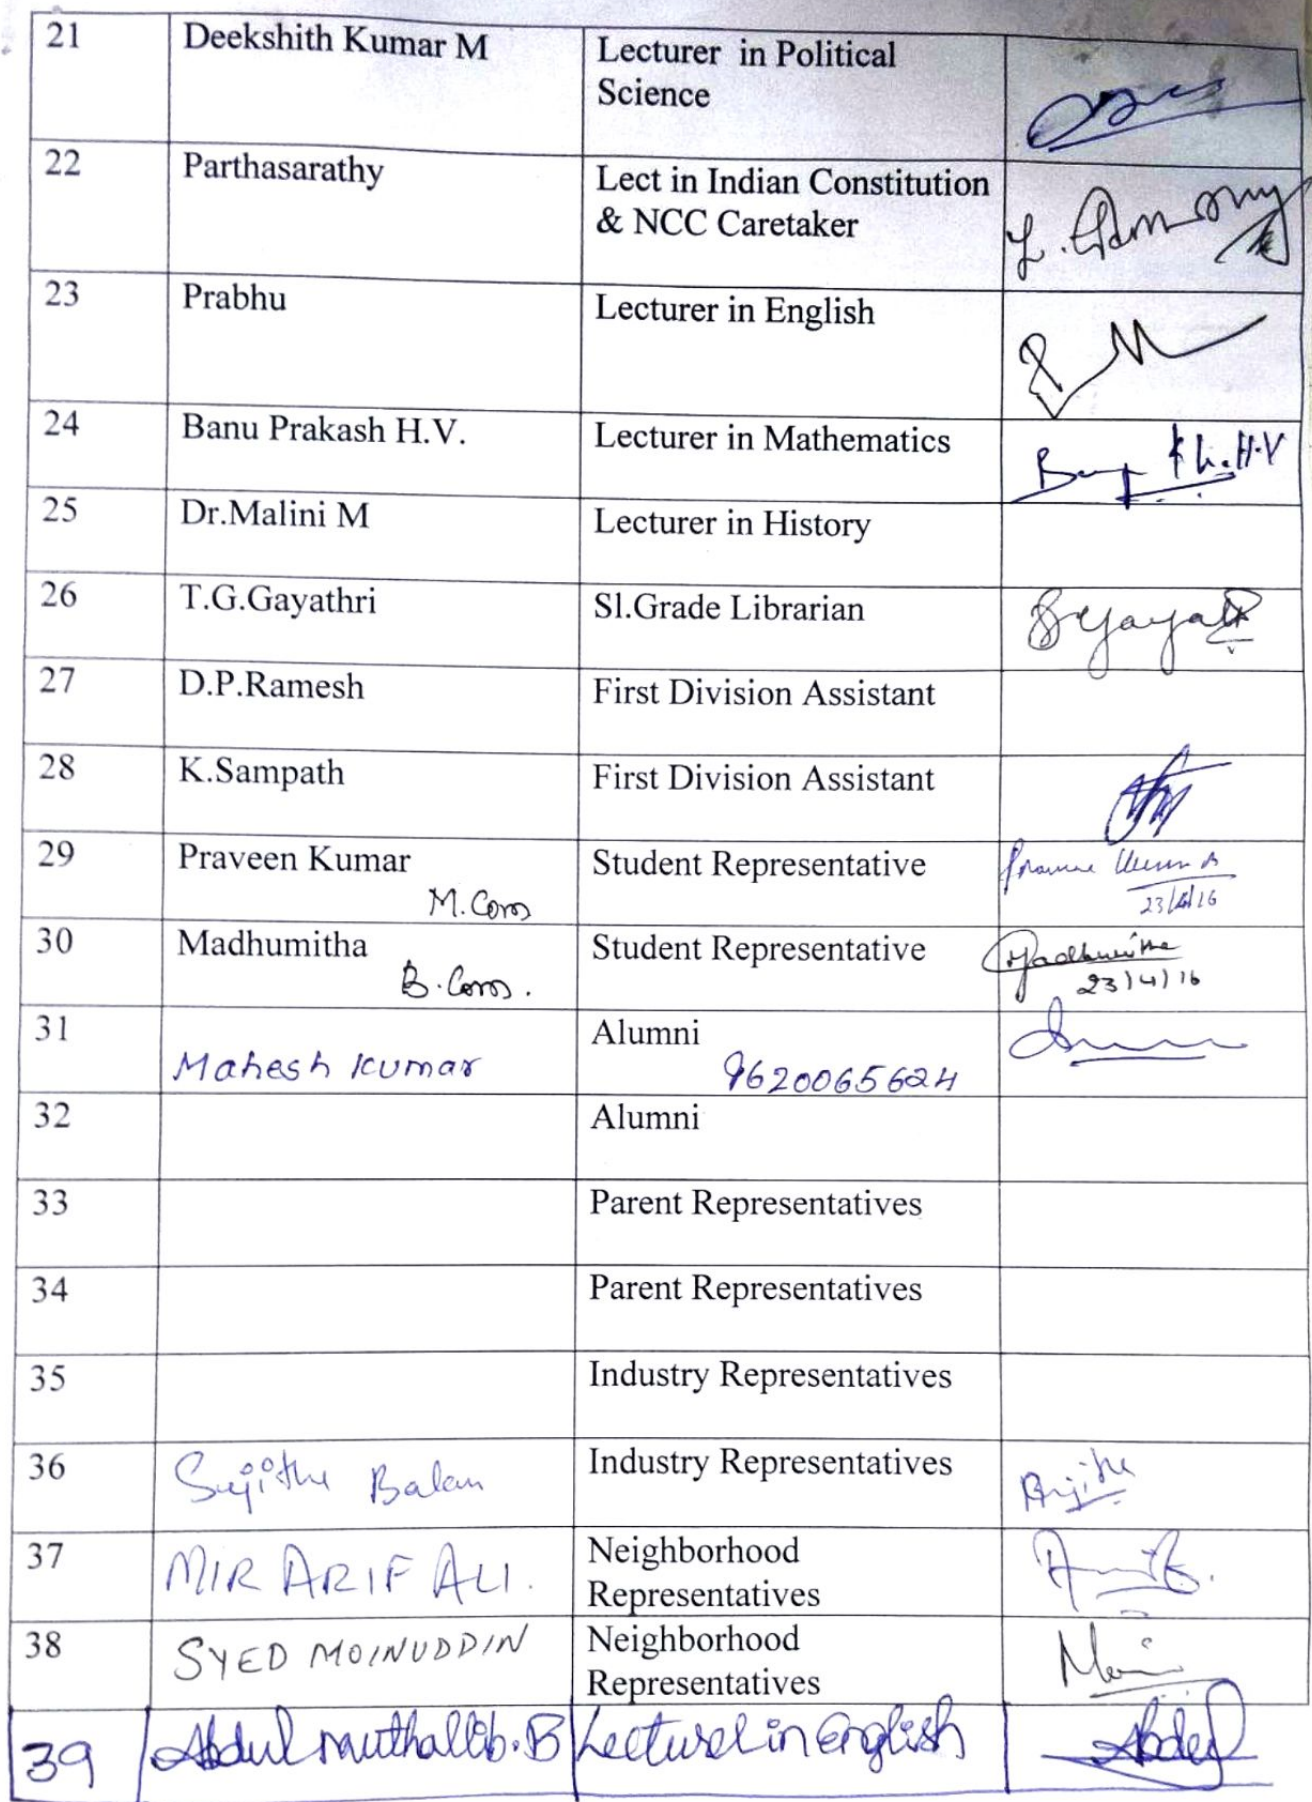 21 Deekshith Kumar M Lecturer in Political
Science
22 Parthasarathy Lect in Indian Constitution
& NCC Caretaker
23 Prabhu Lecturer in English
24 Banu Prakash H.V. Lecturer in Mathematics H.V
25 Dr.Malini M Lecturer in History
26 T.G.Gayathri Sl.Grade Librarian
27 D.P.Ramesh First Division Assistant
28 K.Sampath First Division Assistant
29 Praveen Kumar Student Representative
M.Com 23/4/16
30 Madhumitha Student Representative Madhumitha
B.Com. 23/4/16
31 Alumni
Mahesh Kumar 9620065624
32 Alumni
33 Parent Representatives
34 Parent Representatives
35 Industry Representatives
36 Sujitha Balan Industry Representatives
37 MIR ARIF ALI. Neighborhood
Representatives
38 SYED MOINUDDIN Neighborhood
Representatives
39 Abdul muthallib.B Lecturer in English